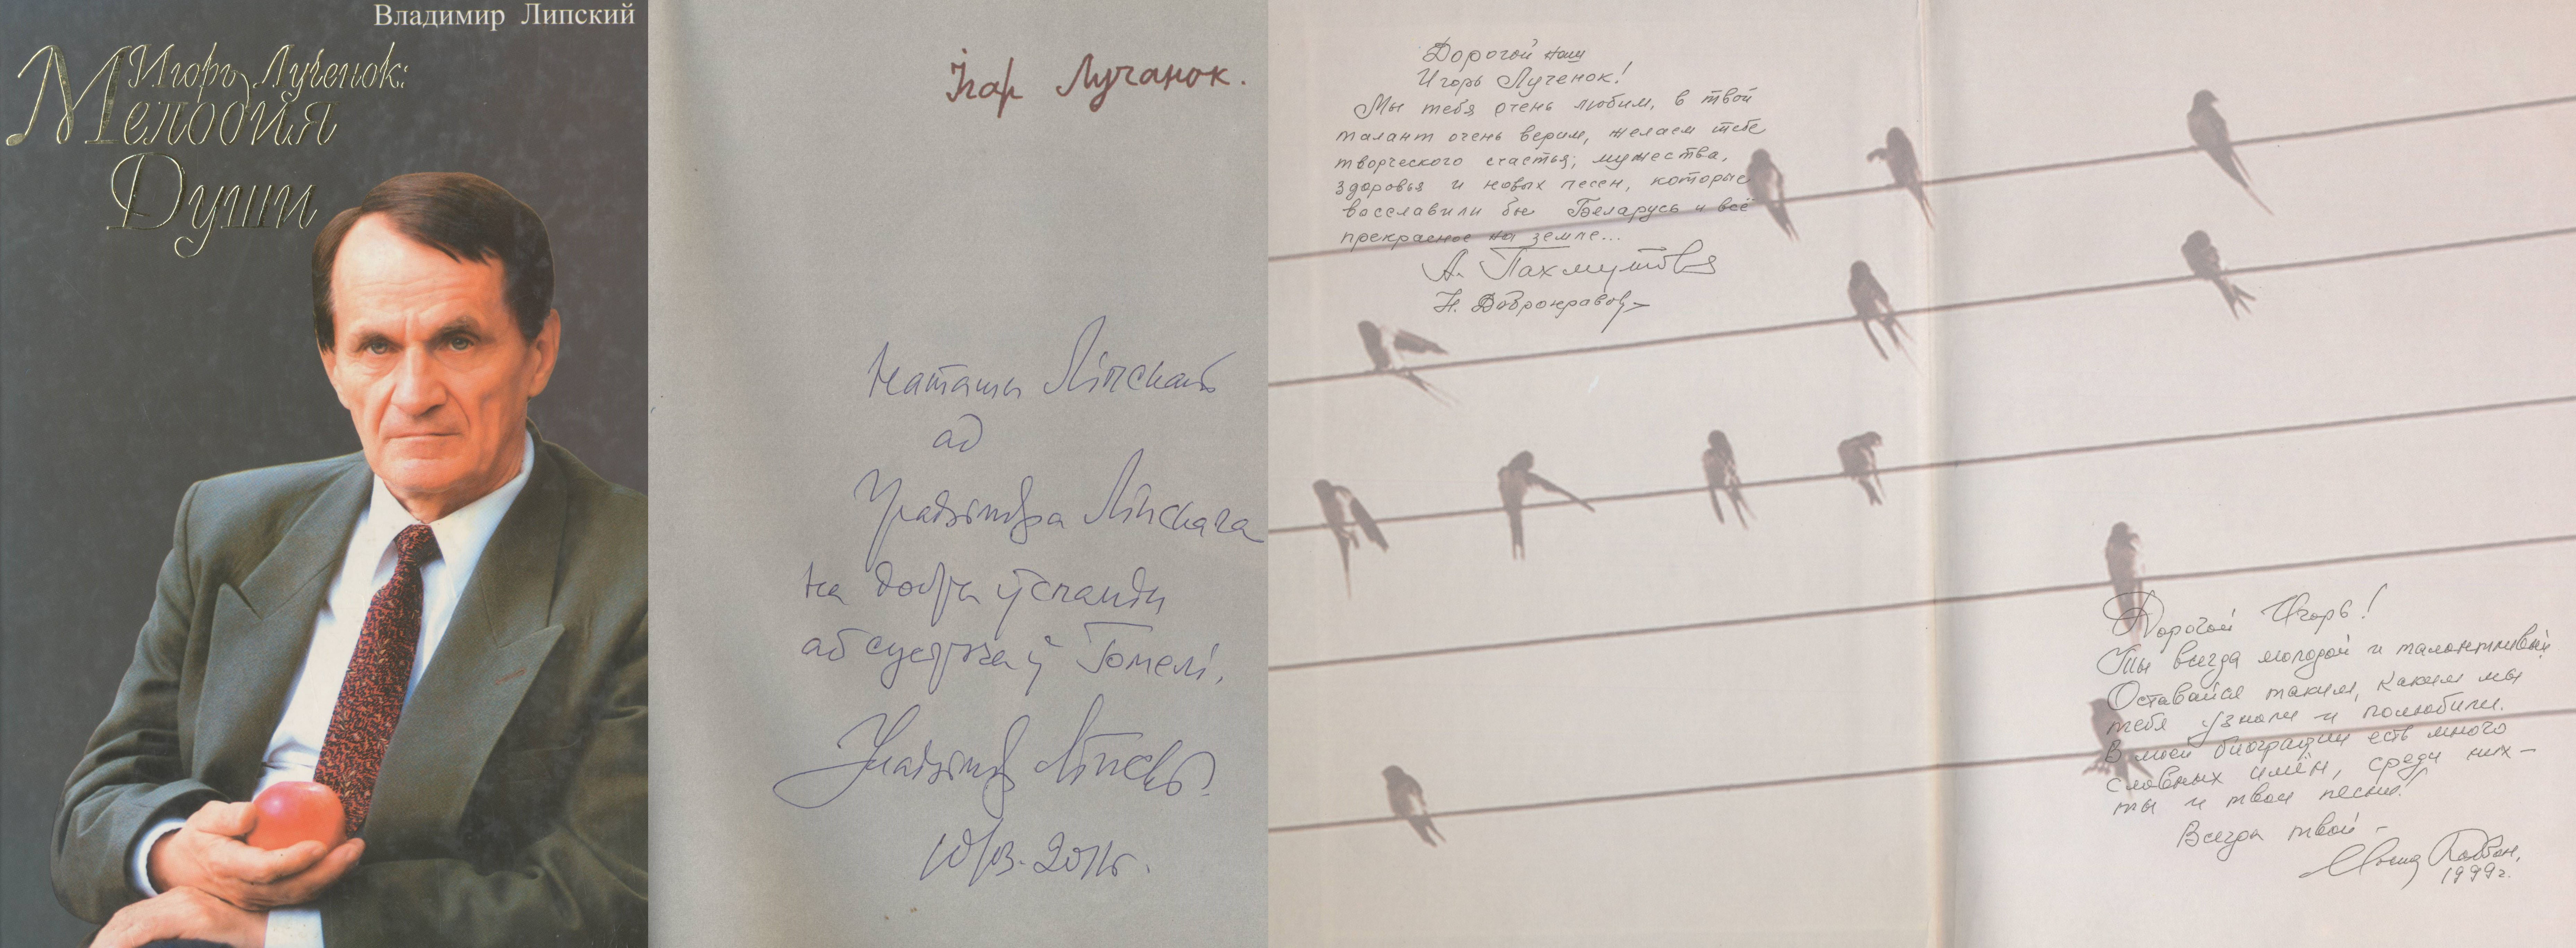 Владимир Липский
Игорь Лученок:
Мелодия
Души
Ігар Лучанок.
Наташы Ліпскай
ад
Уладзіміра Ліпскага
на добры ўспамін
аб сустрэчы ў Гомелі.
Уладзімір Ліпскі
Дорогой наш
Игорь Лученок!
Мы тебя очень любим, в твой
талант очень верим, желаем тебе
творческого счастья, мужества,
здоровья и новых песен, которые
восславили бы Беларусь и всё
прекрасное на земле...
А. Пахмутова
Н. Добронравов
Дорогой Игорь!
Ты всегда молодой и талантливый
Оставайся таким, каким мы
тебя узнали и полюбили.
В моей биографии есть много
славных имён, среди них –
ты и твои песни!
Всегда твой –
Иосиф Кобзон,
1999г.